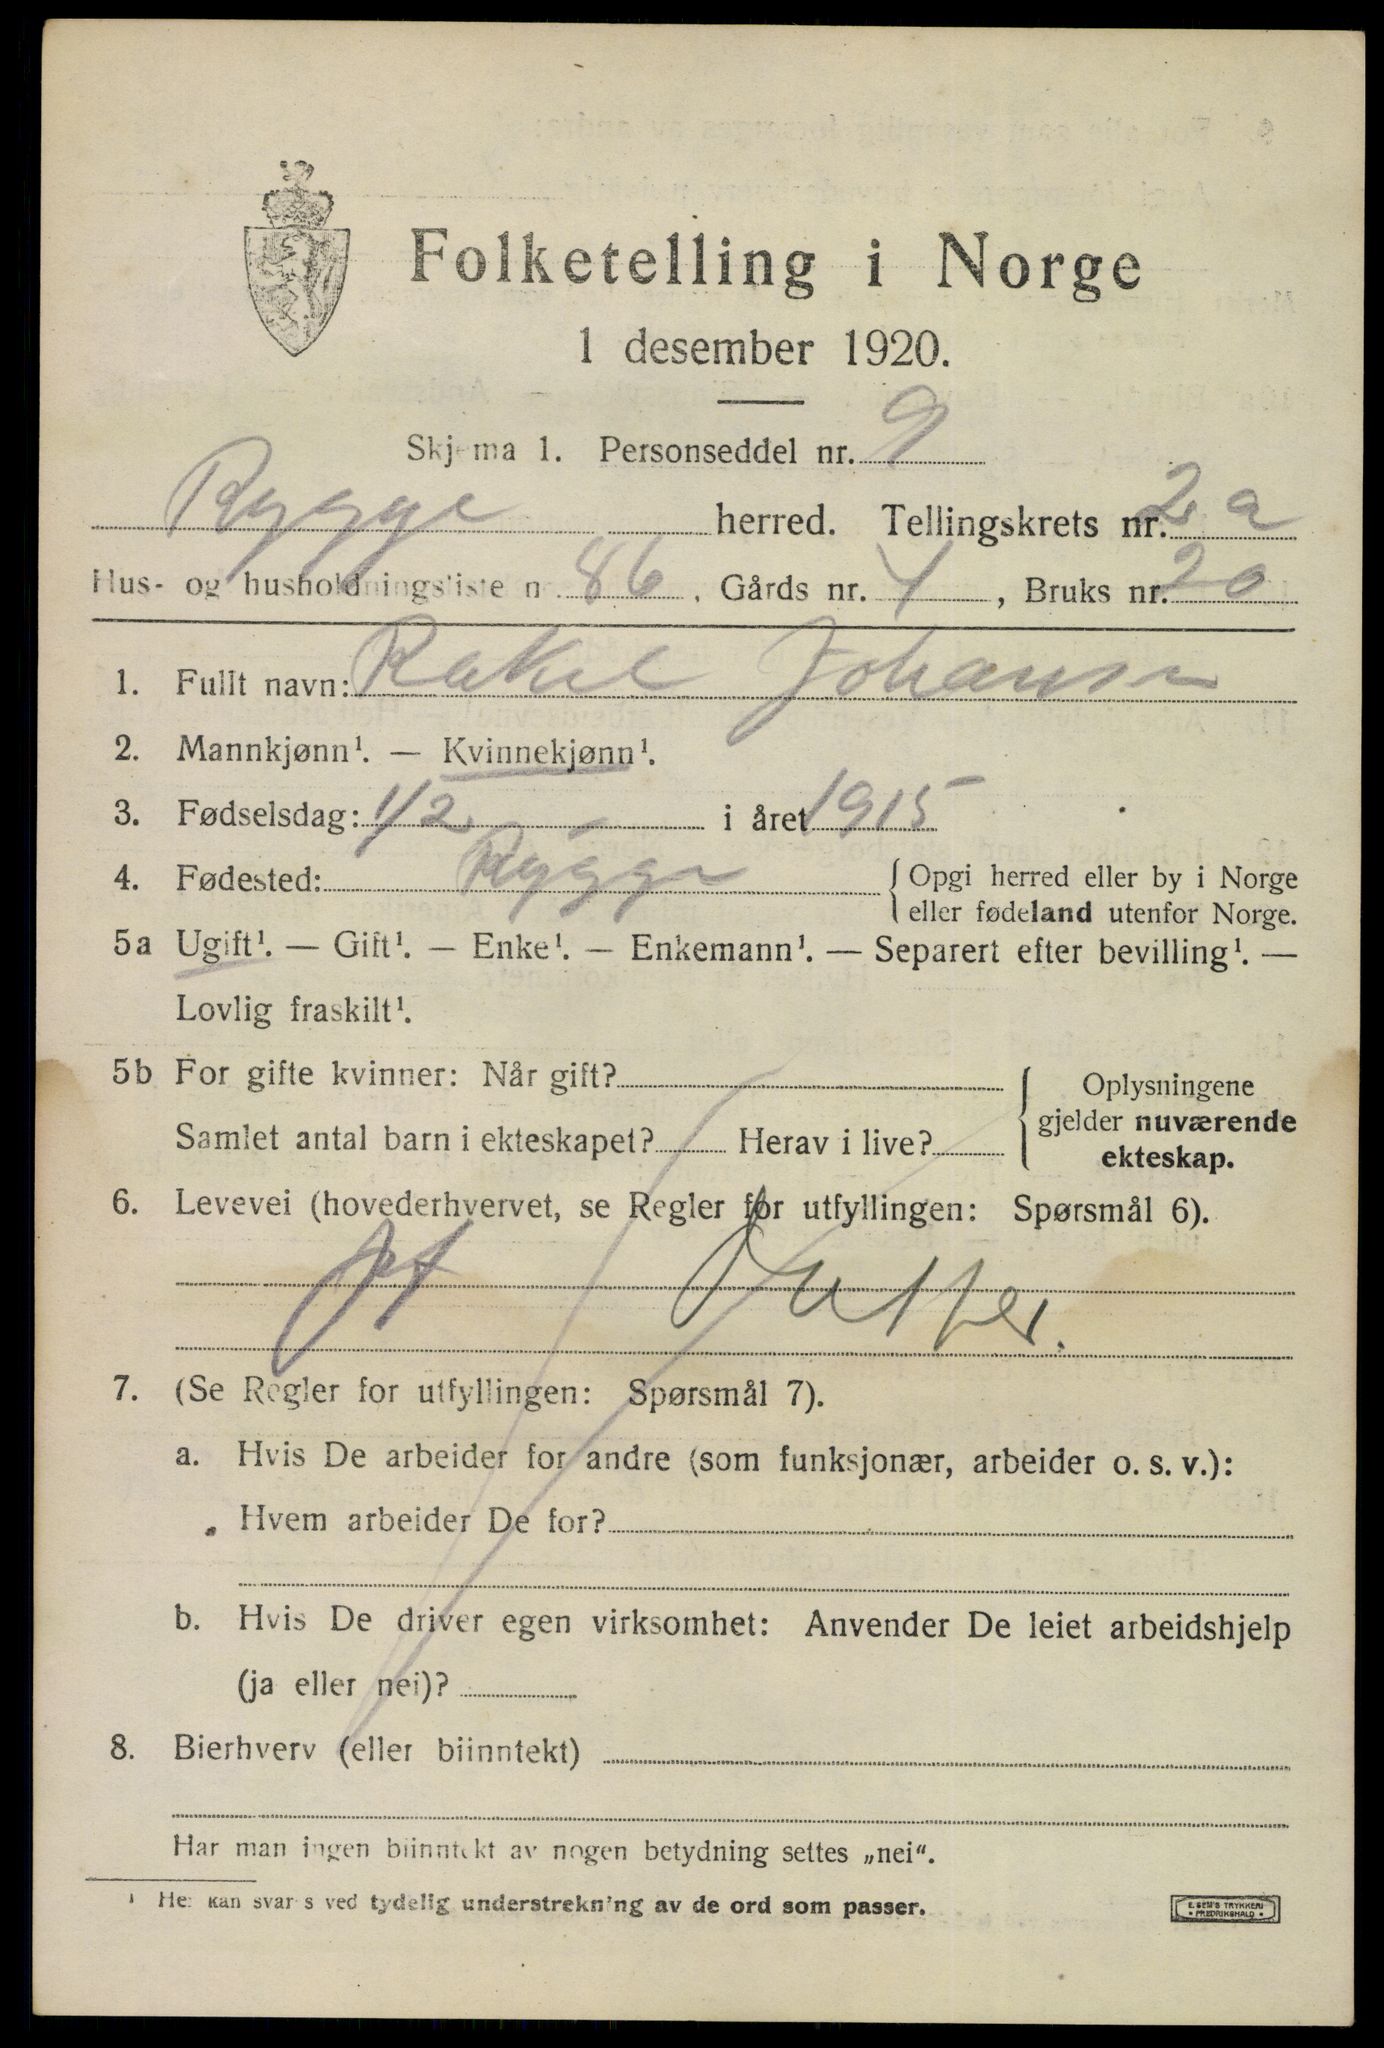 Folketelling i Norge
1 desember 1920.
Skjema 1. Personseddel nr. 9
Rygge herred. Tellingskrets nr. 2 a
Hus- og husholdningsliste nr. 86, Gårds nr. 4, Bruks nr. 20
1. Fullt navn: Rakel Johansen
2. Mannkjønn¹. — Kvinnekjønn¹.
3. Fødselsdag: 1/2 i året 1915
4. Fødested: Rygge { Opgi herred eller by i Norge
eller fødeland utenfor Norge.
5a Ugift¹. — Gift¹. — Enke¹. — Enkemann¹. — Separert efter bevilling¹. —
Lovlig fraskilt¹.
5b For gifte kvinner: Når gift?
Samlet antal barn i ekteskapet? Herav i live?
{ Oplysningene
gjelder nuværende
ekteskap.
6. Levevei (hovederhvervet, se Regler for utfyllingen: Spørsmål 6).
7. (Se Regler for utfyllingen: Spørsmål 7).
a. Hvis De arbeider for andre (som funksjonær, arbeider o. s. v.):
Hvem arbeider De for?
b. Hvis De driver egen virksomhet: Anvender De leiet arbeidshjelp
(ja eller nei)?
8. Bierhverv (eller biinntekt)
Har man ingen biinntekt av nogen betydning settes „nei".
¹ Her kan svares ved tydelig understrekning av de ord som passer.
E. SEM'S TRYKKERI
• FREDRIKSHALD •